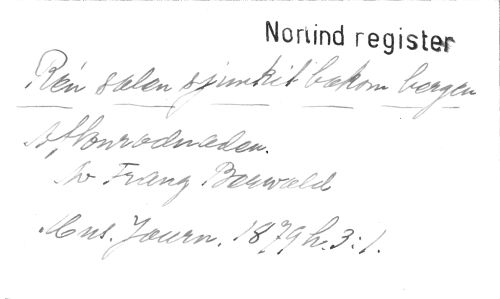 Nortind register
Re'n solen sjunkit bakom bergen
Aftonrodnaden.
Av Franz Berwald
Mus. Journ. 1879 h. 3:1.